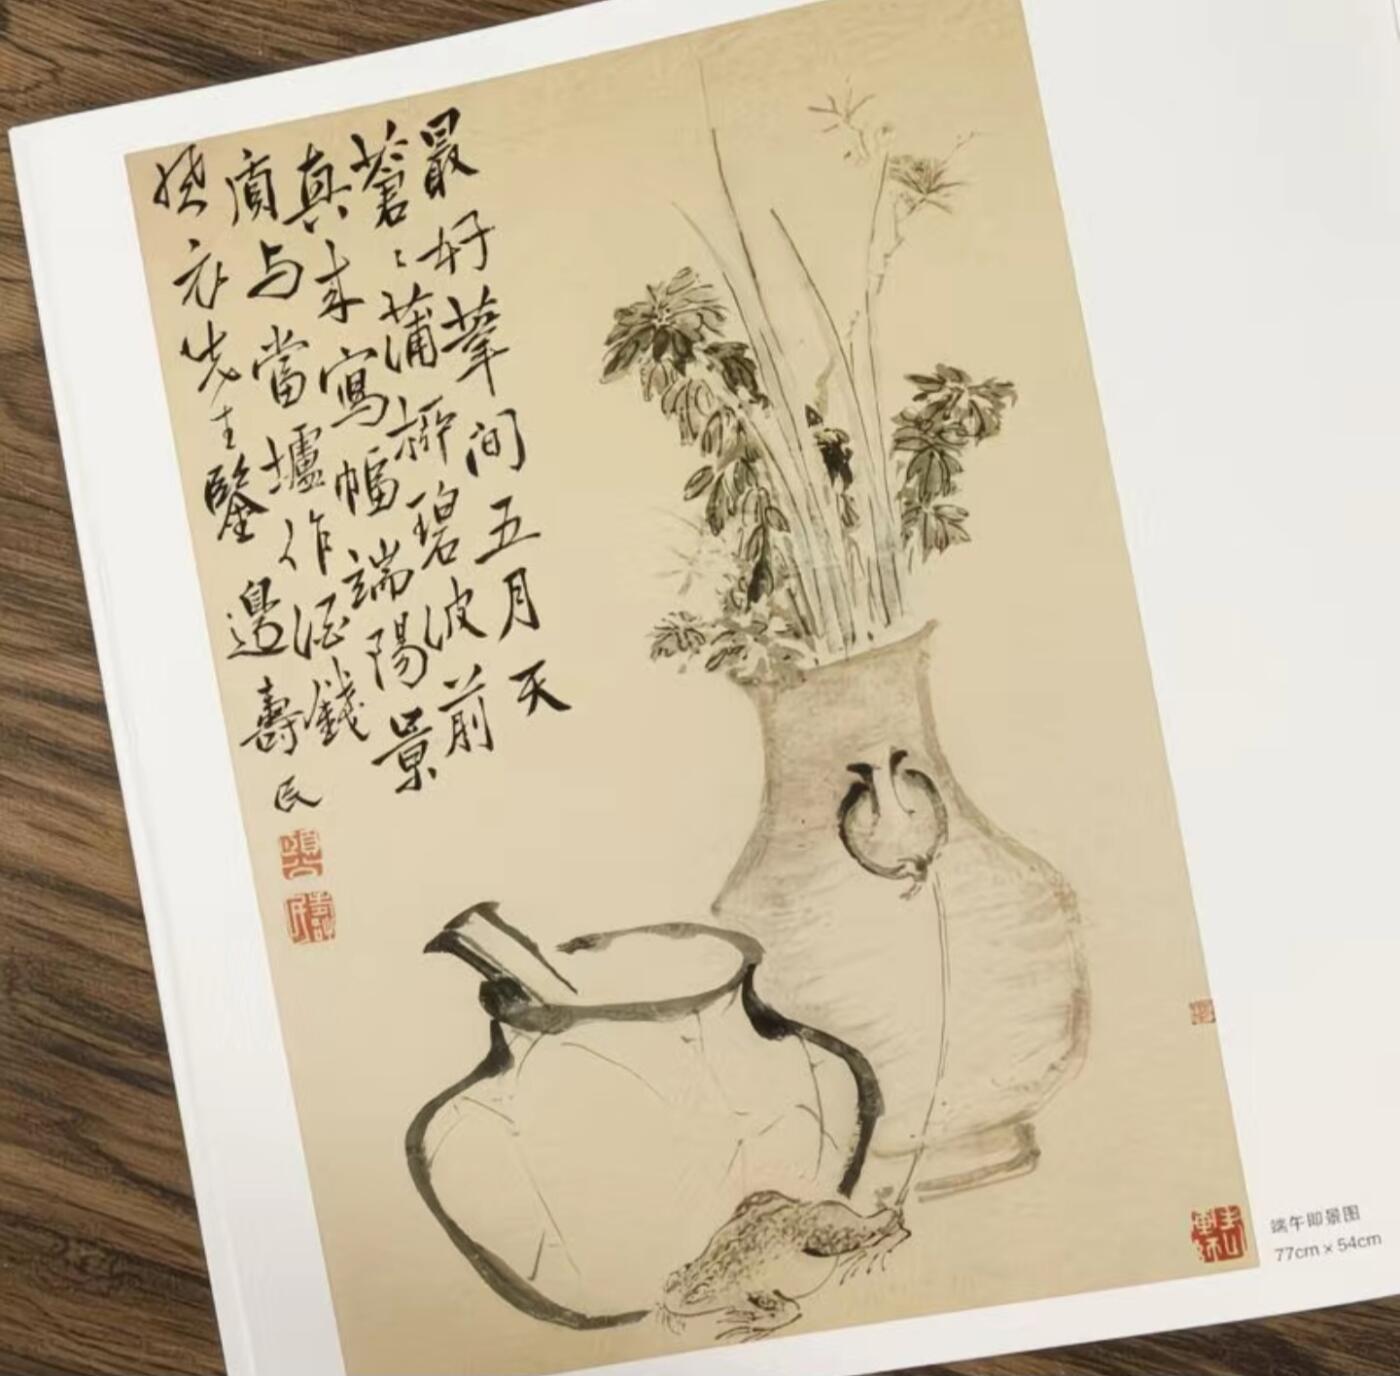 最好葦間五月天
蒼〻蒲栁碧波前
真来寫幅端陽景
質与當壚作酒錢
先生鑒 邉壽民
頤公
壽民
端午即景图
77cm × 54cm